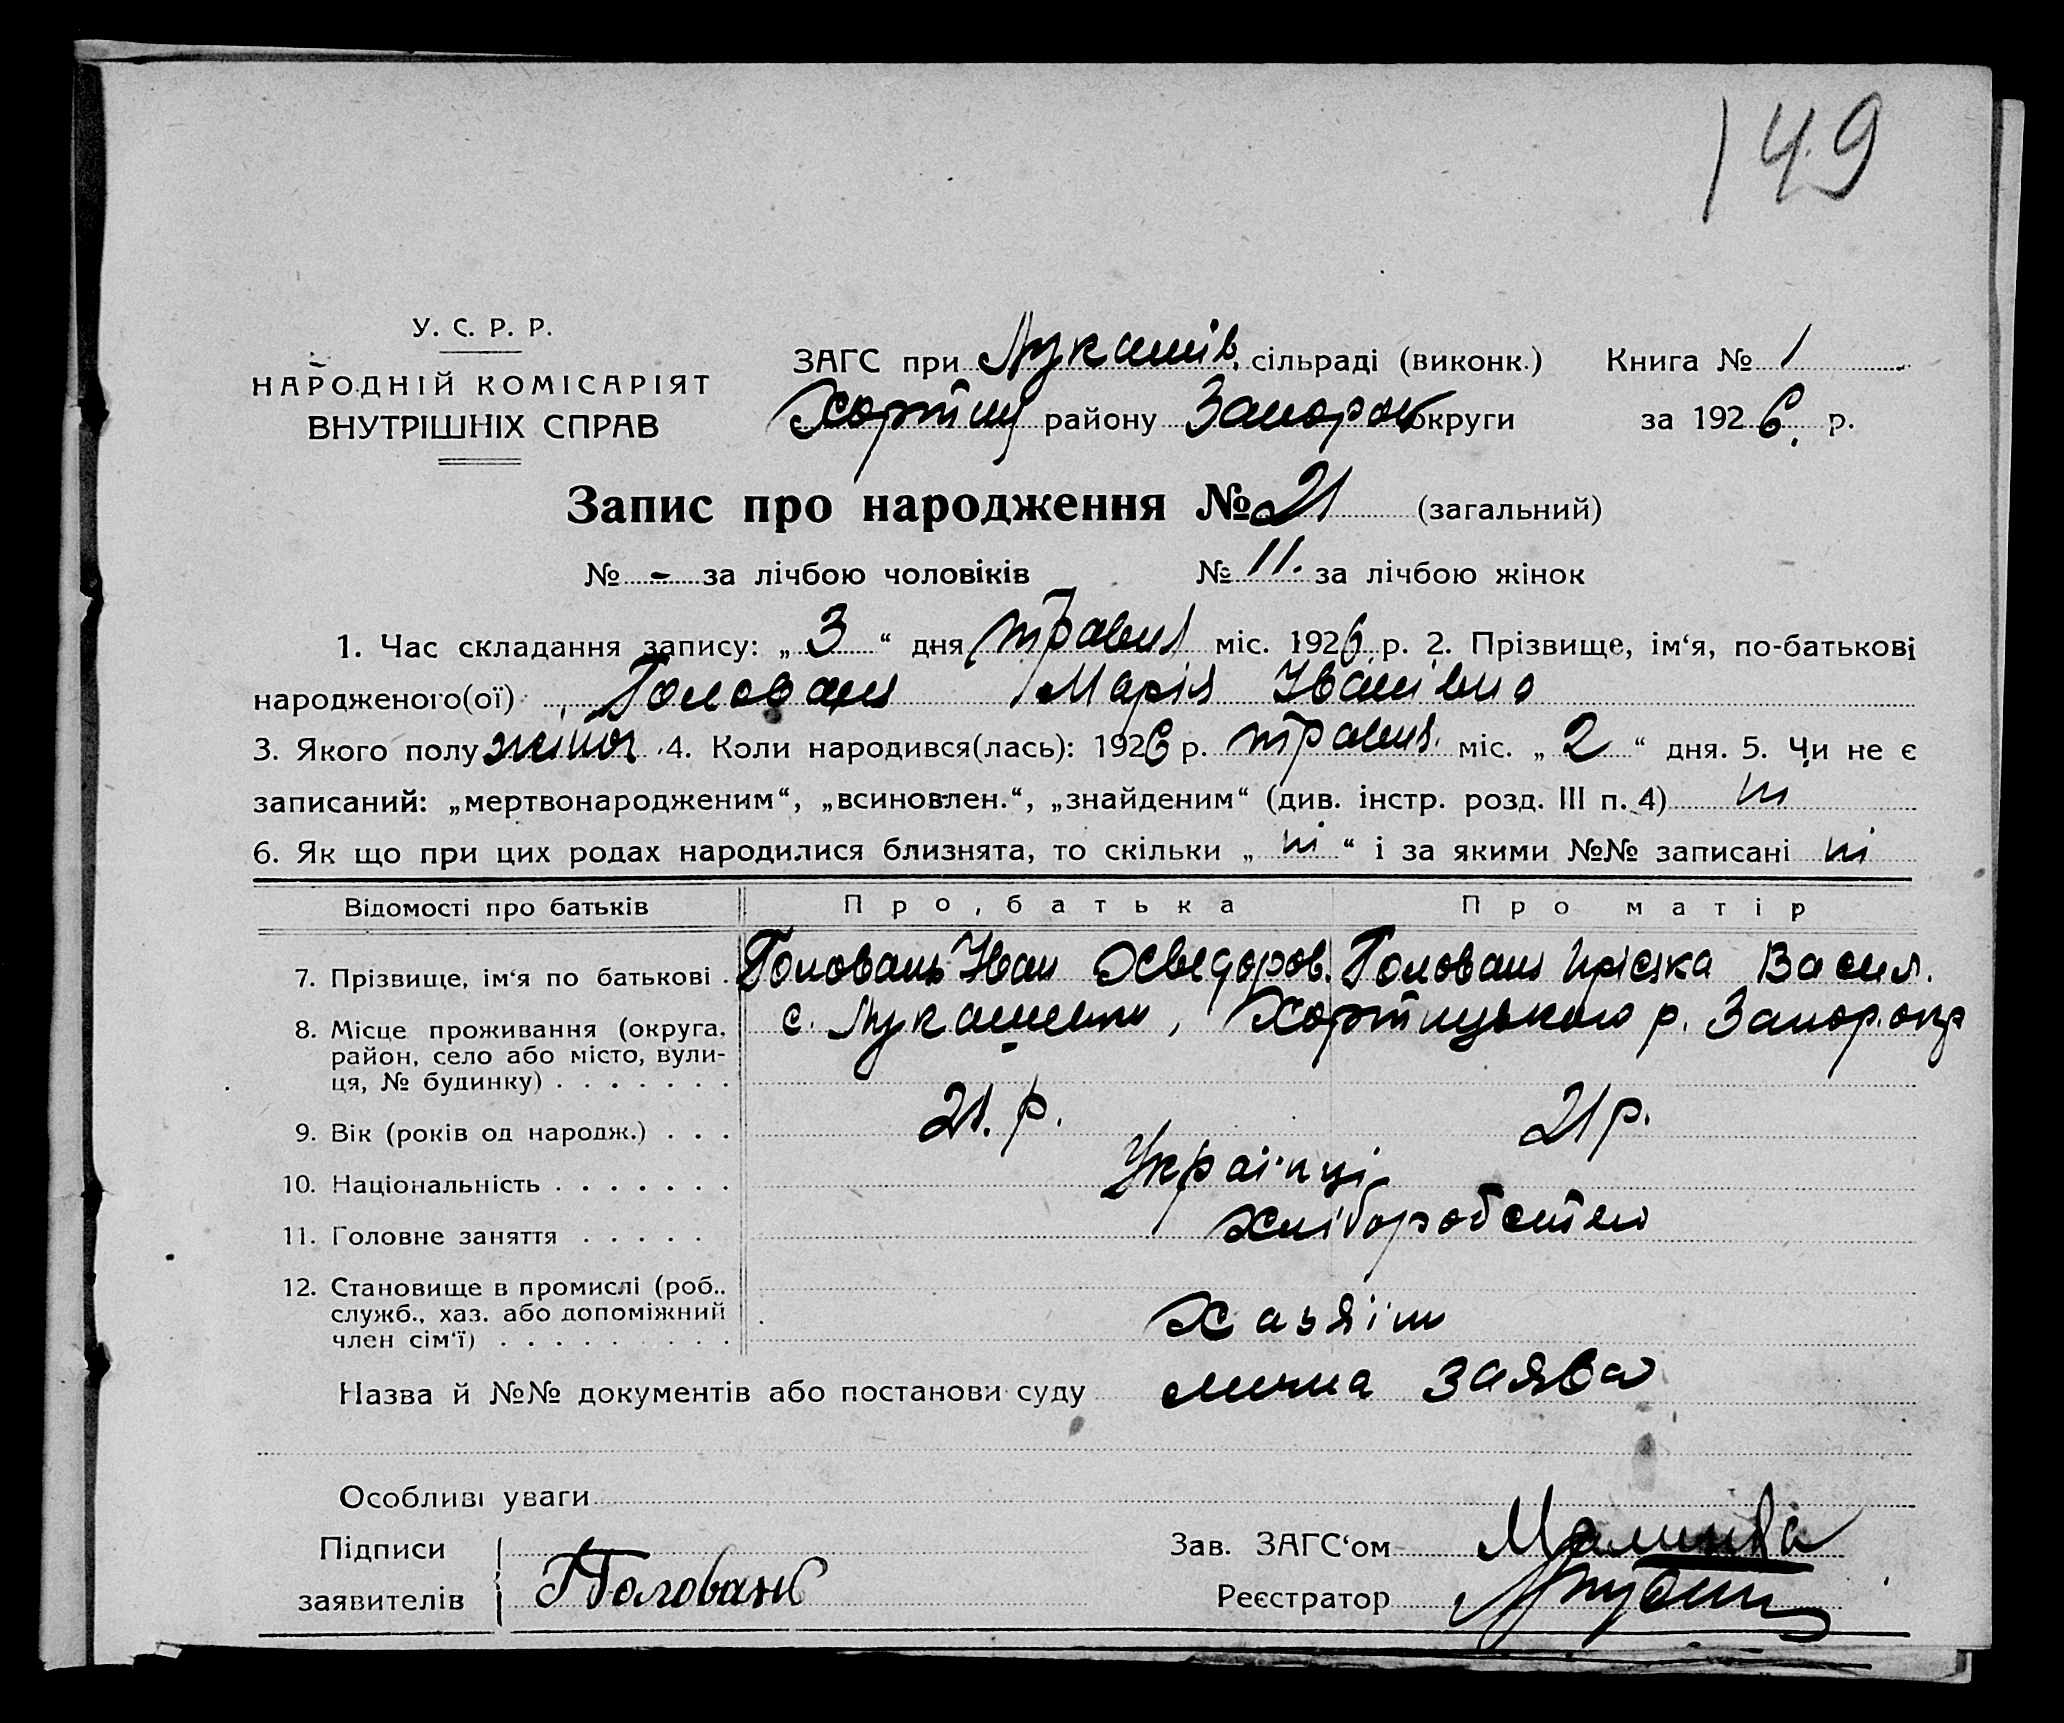 149
У. С. Р. Р.
НАРОДНІЙ КОМІСАРІЯТ
ВНУТРІШНІХ СПРАВ
ЗАГС при Лукашів. сільраді (виконк.) Книга № 1
Хортиц району Запорож округи за 1926. р.
Запис про народження № 21 (загальний)
№ - за лічбою чоловіків № 11. за лічбою жінок
1. Час складання запису: „ 3 “ дня травня міс. 1926 р. 2. Прізвище, ім‘я, по-батькові
народженого(ої) Головань Марія Іванівна
3. Якого полу жіноч 4. Коли народився(лась): 1926 р. травня міс. „ 2 “ дня. 5. Чи не є
записаний: „мертвонародженим“, „всиновлен.“, „знайденим“ (див. інстр. розд. III п. 4) ні
6. Як що при цих родах народилися близнята, то скільки „ ні “ і за якими №№ записані ні
Відомості про батьків Про батька Про матір
7. Прізвище, ім‘я по батькові . Головань Іван Головань Пріська Васил.
8. Місце проживання (округа, с. Лукашевка, Хортицького р. Запор. окр
район, село або місто, вули-
ця, № будинку) . . . . . . .
9. Вік (років од народж.) . . . 21. р. 21 р.
10. Національність . . . . . . . Українці
11. Головне заняття . . . . . хліборобство
12. Становище в промислі (роб.,
служб., хаз. або допоміжний хазяїни
член сім‘ї) . . . . . . . . .
Назва й №№ документів або постанови суду лична заява
Особливі уваги
Підписи Зав. ЗАГС‘ом
заявителів Головань Реєстратор